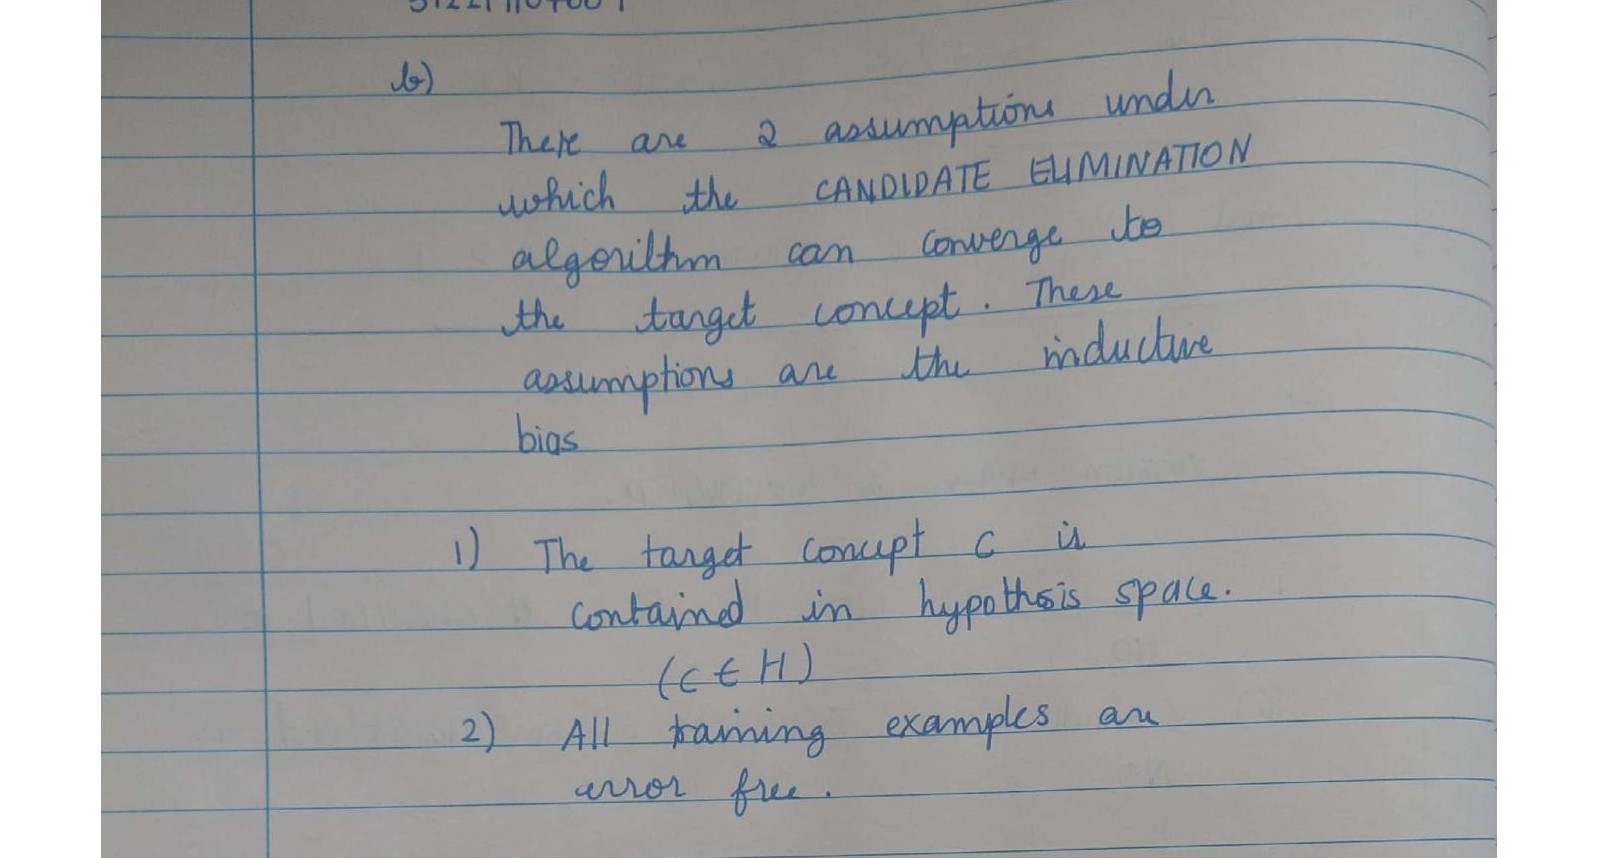 b)
There are 2 assumptions under
which the CANDIDATE ELIMINATION
algorithm can converge to
the target concept. These
assumptions are the inductive
bias
1) The target concept c is
contained in hypothesis space.
(c ∈ H)
2) All training examples are
error free.